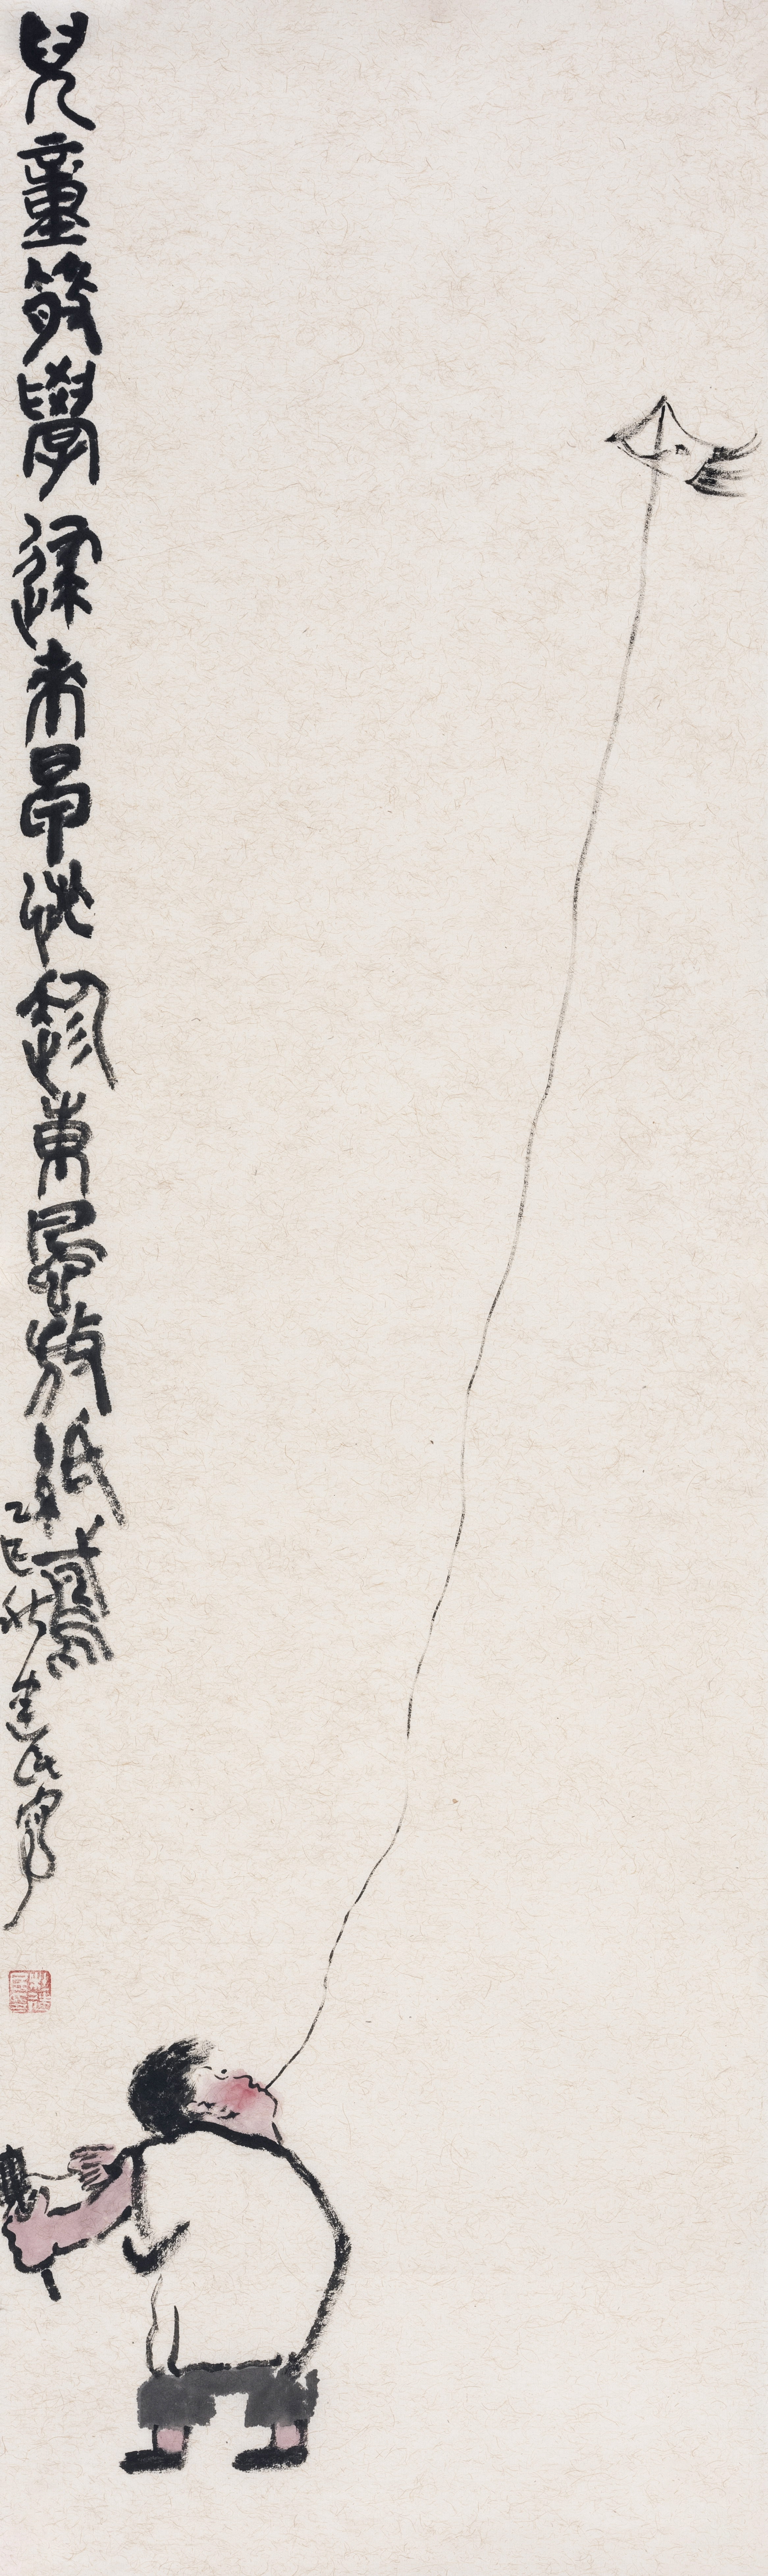 兒童散學歸來早忙趁東風放紙鳶
乙巳秋建民寫